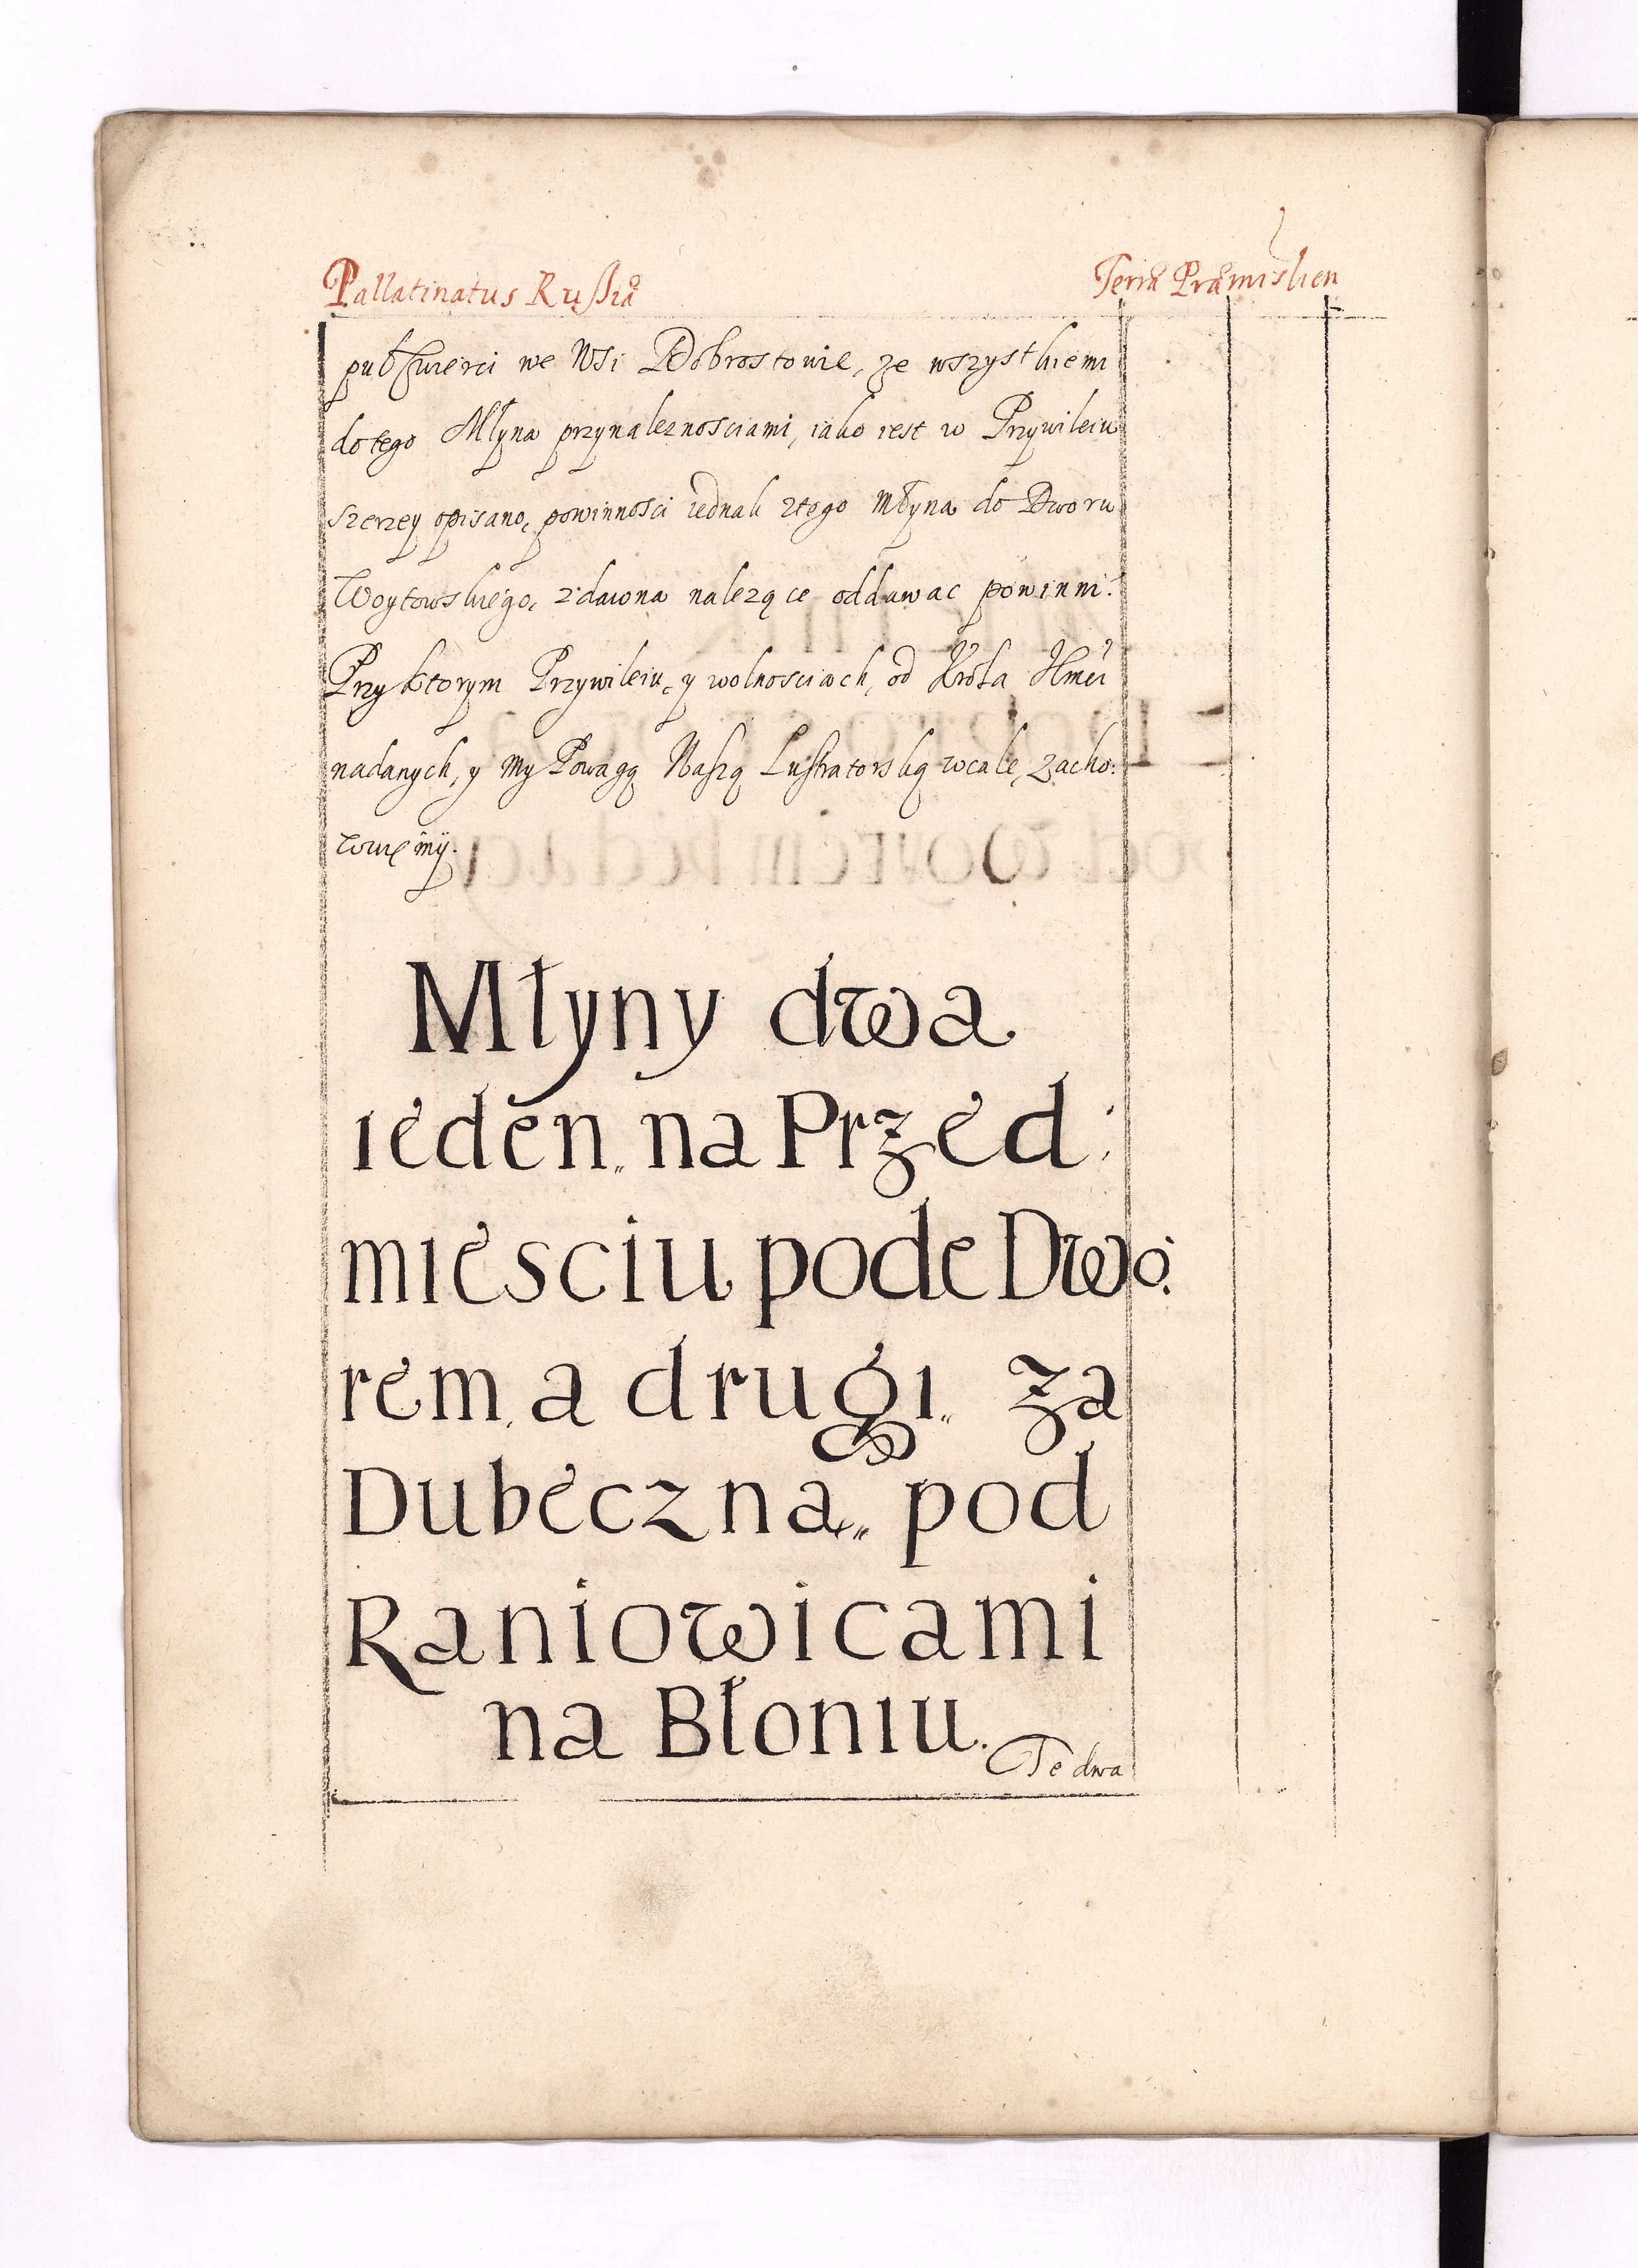 Pallatinatus Russiæ
Terræ Præmislien
puł Cwierci we Wsi Dobrostowie, ze wszystkiemi
do tego Młyna przynaleznosciami, iako iest w Przywileiu
szerzey opisano, powinnosci iednak z tego młyna do Dworu
Woytowskiego, zdawna nalezące oddawac powinni.
Przy ktorym Przywileiu, y wolnosciach, od Krola JKmci
nadanych, y my Powagą Naszą Lustratorską wcale, zacho:
wuięmy.
Młyny dwa
ieden„ na Przed:
miesciu pode Dwo:
rem, a drugi„ za
Dubeczną„ pod
Raniowicami
na Błoniu.
Te dwa